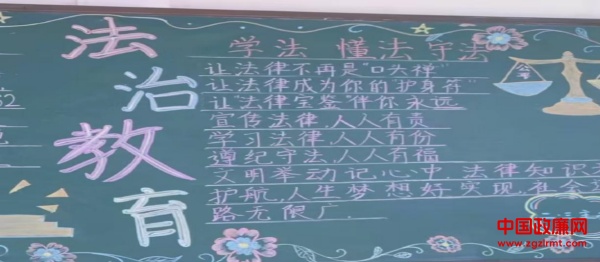 法治教育
学法 懂法 守法
让法律不再是口头禅"
让法律成为你的护身符"
让法律宝鉴伴你永远
宣传法律,人人有责
学习法律,人人有份
遵纪守法,人人有福
文明举动记心中 法律知识
护航,人生梦想好实现,在
路无限广.
中国政廉网
www.zgzlrmt.com